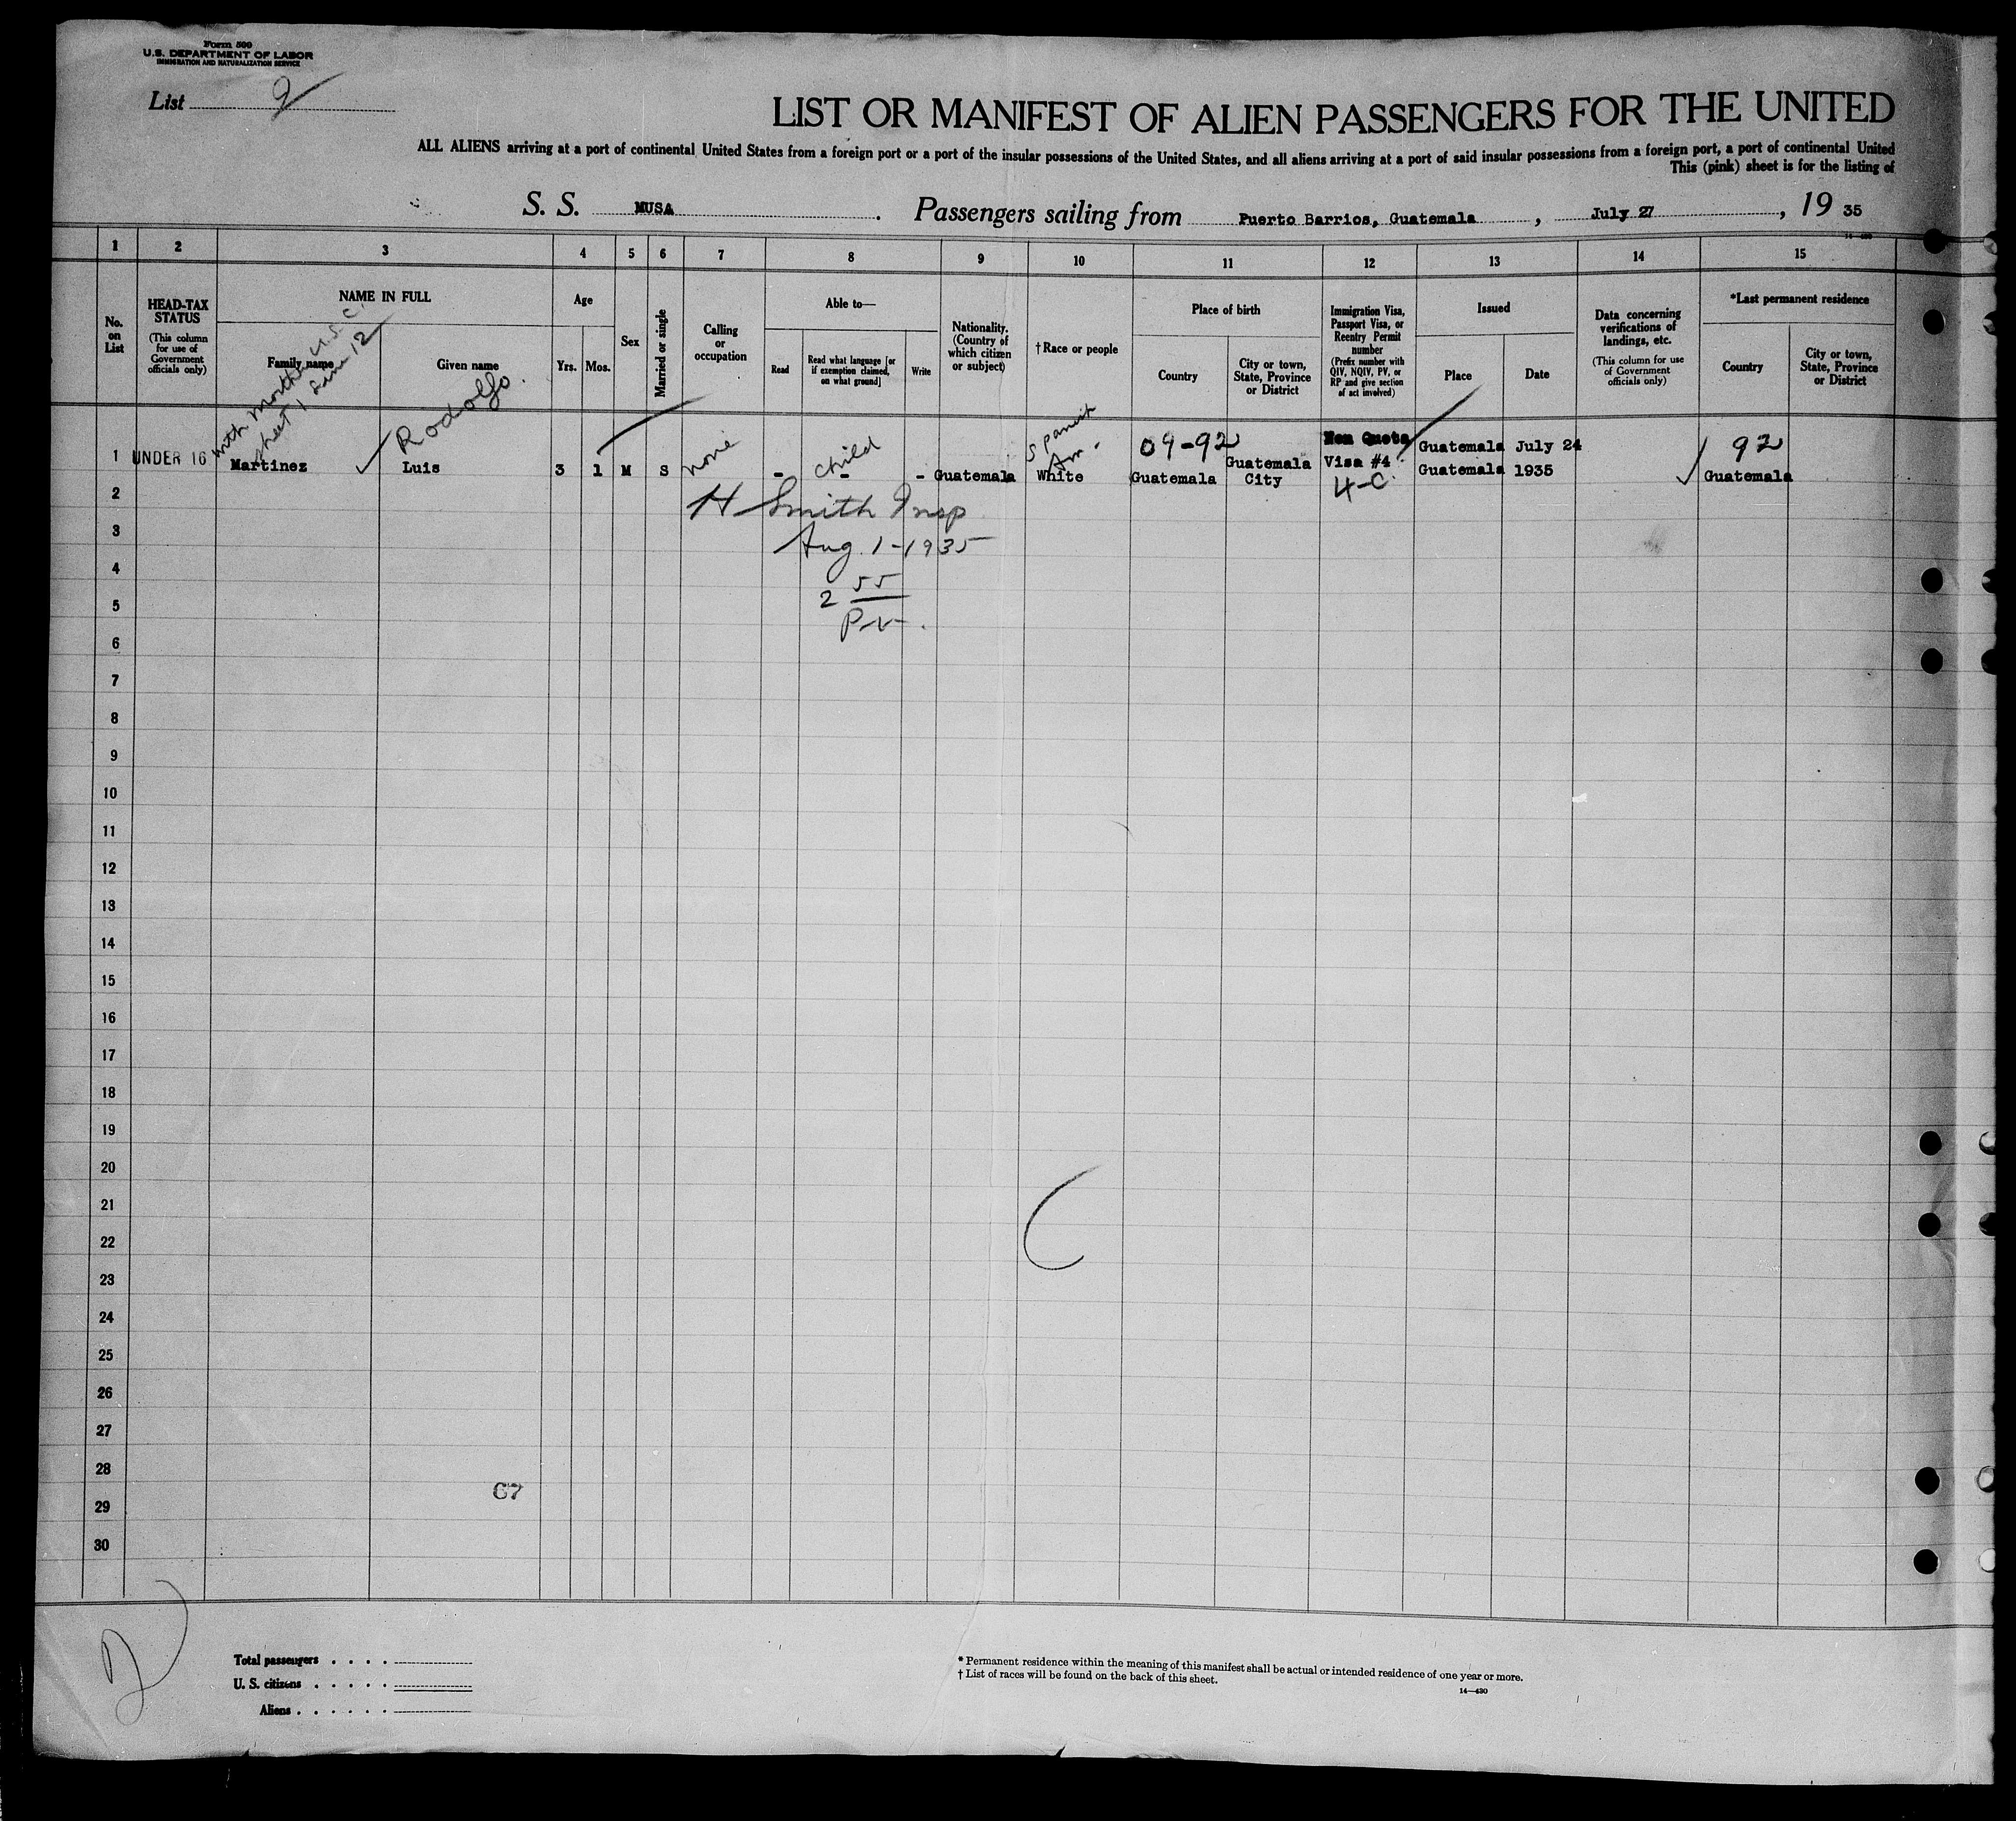 Form 500
U.S. DEPARTMENT OF LABOR
IMMIGRATION AND NATURALIZATION SERVICE
List 2
LIST OR MANIFEST OF ALIEN PASSENGERS FOR THE UNITED
ALL ALIENS arriving at a port of continental United States from a foreign port or a port of the insular possessions of the United States, and all aliens arriving at a port of said insular possessions from a foreign port, a port of continental United
This (pink) sheet is for the listing of
S. S. MUSA . Passengers sailing from Puerto Barrios, Guatemala , July 27 , 19 35
1 2 3 4 5 6 7 8 9 10 11 12 13 14 15
No. on List
HEAD-TAX STATUS
(This column for use of Government officials only)
NAME IN FULL
Family name
Given name
Age
Yrs.
Mos.
Sex
Married or single
Calling or occupation
Able to—
Read
Read what language [or if exemption claimed, on what ground]
Write
Nationality. (Country of which citizen or subject)
†Race or people
Place of birth
Country
City or town, State, Province or District
Immigration Visa, Passport Visa, or Reentry Permit number
(Prefix number with QIV, NQIV, PV, or RP and give section of act involved)
Issued
Place
Date
Data concerning verifications of landings, etc.
(This column for use of Government officials only)
*Last permanent residence
Country
City or town, State, Province or District
with mother U.S.C.
sheet 1 Line 12
Rodolfo.
none
child
Spanish
Am.
04-92
Non Quota
Guatemala July 24
92
1 UNDER 16 Martinez Luis 3 1 M S - - - Guatemala White Guatemala Guatemala City Visa #4 Guatemala 1935 Guatemala
4-C.
2
H Smith Insp
3
Aug. 1-1935
4
5
2 55
6
7
8
9
10
11
12
13
14
15
16
17
18
19
20
21
22
23
24
25
26
27
28
67
29
30
Total passengers . . . .
U. S. citizens . . . . .
Aliens . . . . . .
* Permanent residence within the meaning of this manifest shall be actual or intended residence of one year or more.
† List of races will be found on the back of this sheet.
14—430
2